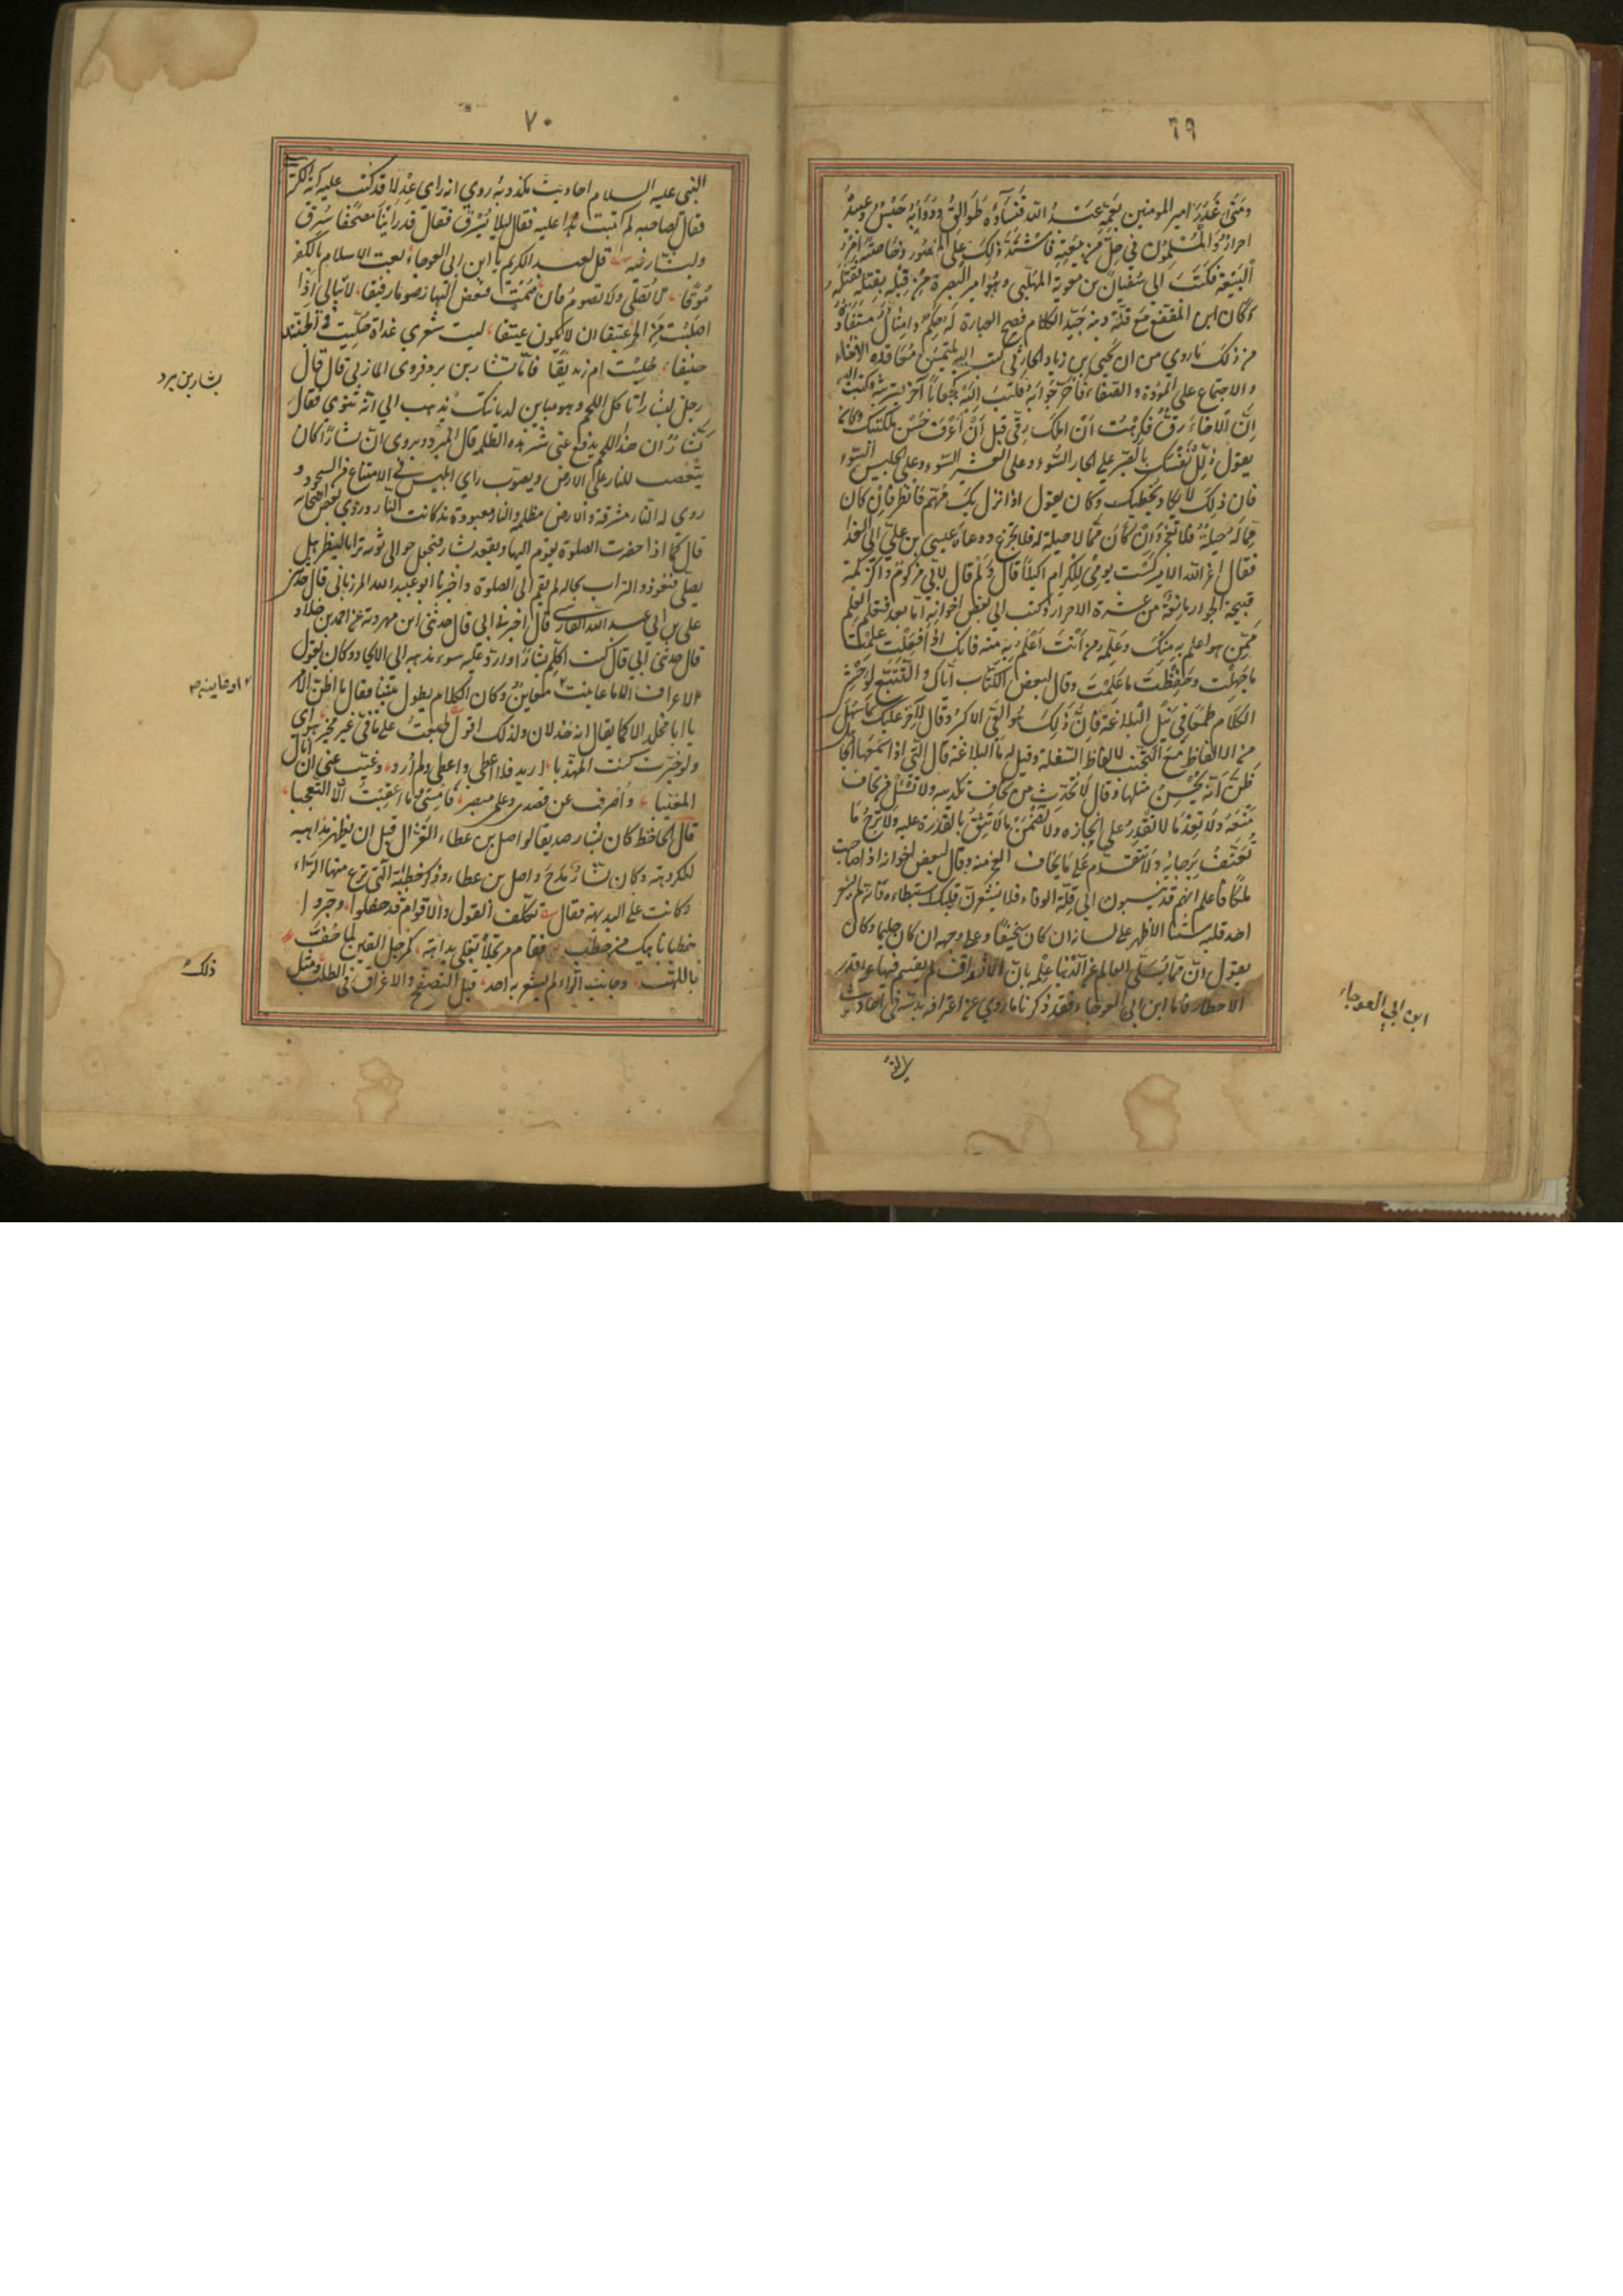 ٦٩
ومتى غدر امير المومنين بعمه عبد الله فنساؤه طوالق ودوابه حبس وعبيده
احرار والمسلمون في حل من بيعته فاشتد ذلك على المنصور وخاصة امر
البيعة فكتب الى سفيان بن معوية المهلبي وهو امير البصرة من قبله بقتله فقتله
وكان ابن المقفع مع قلة دينه جيد الكلام فصيح العبارة له حكم وامثال مستفادة
من ذلك ما روي من ان يحيى بن زياد الحارثي كتب اليه يلتمس معاقدة الاخاء
والاجتماع على المودة والصفاء فاخر جوابه فكتب اليه كتابا آخر يسترثه فكتب اليه
ان الاخاء رق فكرهت ان املكك رقي قبل ان اعرف حسن ملكتك وكان
يقول ذلل نفسك بالصبر على الجار السوء وعلى العشير السوء وعلى الجليس السوء
فان ذلك لا يكاد يخطيك وكان يقول اذا نزل بك مهم فانظر فان كان
مما له حيلة فلا تعجز وان كان مما لا حيلة له فلا تجزع ودعاه عيسى بن علي الى الغذاء
فقال اعز الله الامير لست يومي للكرام اكيلا قال ولم قال لاني مزكوم والزكمة
قبيحة الجوار مانعة من عشرة الاحرار وكتب الى بعض اخوانه اما بعد فتعلم العلم
ممن هو اعلم به منك وعلمه من انت اعلم به منه فانك اذا فعلت علمت
ما جهلت وحفظت ما علمت وقال لبعض الكتاب اياك والتتبع لوحشي
الكلام طمعا في نيل البلاغة فان ذلك هو العي الاكبر وقال لآخر عليك بما سهل
من الالفاظ مع التجنب لالفاظ السفلة وقيل له ما البلاغة قال التي اذا سمعها الجاهل
ظن انه يحسن مثلها وقال لا تحدث من تخاف تكذيبه ولا تسئل من تخاف
منعه ولا تعد ما لا تقدر على انجازه ولا تضمن ما لا تثق بالقدرة عليه ولا ترج ما
تعنف برجايه ولا تقدم على ما تخاف العجز منه وقال لبعض اخوانه اذا صاحبت
ملكا فاعلم انهم قد ينسبون الى قلة الوفاء فلا تشعرن قلبك استبطاءه فانه لم يشعر
احد قلبه شيئا الا ظهر على لسانه ان كان سخيفا وعلى وجهه ان كان حليما وكان
يقول ان مما يسلي العالم عن الدنيا علمه بان الارزاق لم يقسم فيها على قدر
الاخطار فاما ابن ابي العوجاء فقد ذكرنا ما روي من اعترافه بدسه في احاديث
ابن ابي العوجاء
٧٠
النبي عليه السلام احاديث مكذوبة روي انه راى عدلا قد كتب عليه آية الكرسي
فقال لصاحبه لم كتبت هذا عليه فقال لئلا يسرق فقال قد راينا مصحفا سرق
ولبشار فيه قل لعبد الكريم يا ابن ابي العوجاء بعت الاسلام بالكفر
موقا لا تصلي ولا تصوم فان صمت فبعض النهار صوما رقيقا لا تبالي اذا
اصبت من الخمر عتيقا ان لا يكون عتيقا ليت شعري غداة حليت في الجيد
حنيفا حليت ام زنديقا فاما بشار بن برد فروى المازني قال قال
رجل لبشار اتاكل اللحم وهو مباين لديانتك يذهب الى انه ثنوي فقال
بشار ان هذا اللحم يدفع عني شر هذه الظلمة قال المبرد ويروى ان بشارا كان
يتعصب للنار على الارض ويصوب راي ابليس في الامتناع من السجود و
روى له النار مشرقة والارض مظلمة والنار معبودة مذ كانت النار وروى بعض اصحابه
قال كنا اذا حضرت الصلوة نقوم اليها ويقعد بشار فنجعل حوالى ثوبه ترابا لننظر هل
يصلي فنعود والتراب بحاله لم يقم الى الصلوة واخبرنا ابو عبيد الله المرزباني قال حدثني
علي بن ابي عبد الله الفارسي قال اخبرني ابي قال حدثني ابن مهروية عن احمد بن خلاد
قال حدثني ابي قال كنت اكلم بشارا وارد عليه سوء مذهبه الى الالحاد وكان يقول
لا اعرف الا ما عاينت معاين وكان الكلام يطول بيننا فقال ما اظن الامر
يا ابا مخلد الا كما يقال انه خذلان ولذلك اقول طبعت على ما في غير مخير هواي
ولو خيرت كنت المهذبا اريد فلا اعطى واعطى ولم ارد وغيب عني ان انال
المغيبا واصرف عن قصدي وعلمي مبصر فامسي وما اعقبت الا التعجبا
قال الجاحظ كان بشار صديقا لواصل بن عطاء الغزال قبل ان يظهر مذاهبه
المكروهة وكان بشار مدح واصل بن عطاء وذكر خطبته التي نزع منها الراء
وكانت على البديهة فقال تكلف القول والاقوام قد حفلوا وحبروا
خطبا ناهيك من خطب فقام مرتجلا تغلي بداهته كمرجل القين لما حف
باللهب وجانب الراء لم يشعر به احد قبل التصفح والاغراق في الطلب ومثل
بشار بن برد
او عاينه
ذلك